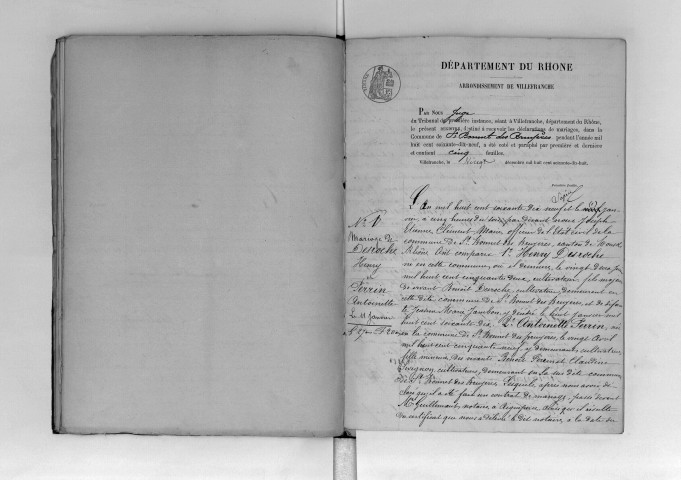 DÉPARTEMENT DU RHONE
ARRONDISSEMENT DE VILLEFRANCHE
PAR NOUS Juge
du Tribunal de première instance, séant à Villefranche, département du Rhône,
le présent registre, destiné à recevoir les déclarations de mariages, dans la
Commune de St Bonnet des Bruyères pendant l'année mil
huit cent soixante-dix-neuf, a été coté et paraphé par première et dernière
et contient cinq feuilles.
Villefranche, le décembre mil huit cent soixante-dix-huit.
Première feuille
No 1
Mariage de
Desroche
Henry
&
Perrin
Antoinette
Le 11 Janvier
L'An mil huit cent soixante dix neuf et le jan
vier, à cinq heures du soir par devant nous Joseph
Clément Marie officier de l'Etat civil de la
commune de St Bonnet des Bruyères, canton de
Rhône Ont comparu 1° Henry Desroche
né en cette commune, où il demeure, le vingt deux
mil huit cent cinquante deux, cultivateur, fils majeur
de vivant Benoît Desroche, cultivateur, demeurant en
cette dite commune de St Bonnet des Bruyères, et de défun
te Marie Jambon, y décédée le huit janvier mil
huit cent soixante dix 2° Antoinette Perrin, née
en la commune de St Bonnet des Bruyères, le vingt avril
mil huit cent cinquante neuf, y demeurant, cultivatrice,
fille mineure des vivants Benoît Perrin et Claudine
cultivateurs, demeurant en la sus dite commune
de St Bonnet des Bruyères Lesquels, après nous avoir dé
claré qu'il a été fait un contrat de mariage, passé devant
Me Guillemant, notaire à Aigueperse, ainsi qu'il résulte
du certificat que nous a délivré le dit notaire, à la date du